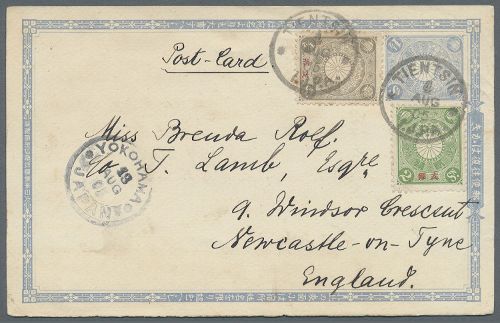 Post-Card
TIENTSIN
TIENTSIN
AUG
支那
支那
Miss Brenda Rolf.
T. Lamb, Esqre
9. Windsor Crescent
Newcastle-on-Tyne
England.
YOKOHAMA
AUG
JAPAN